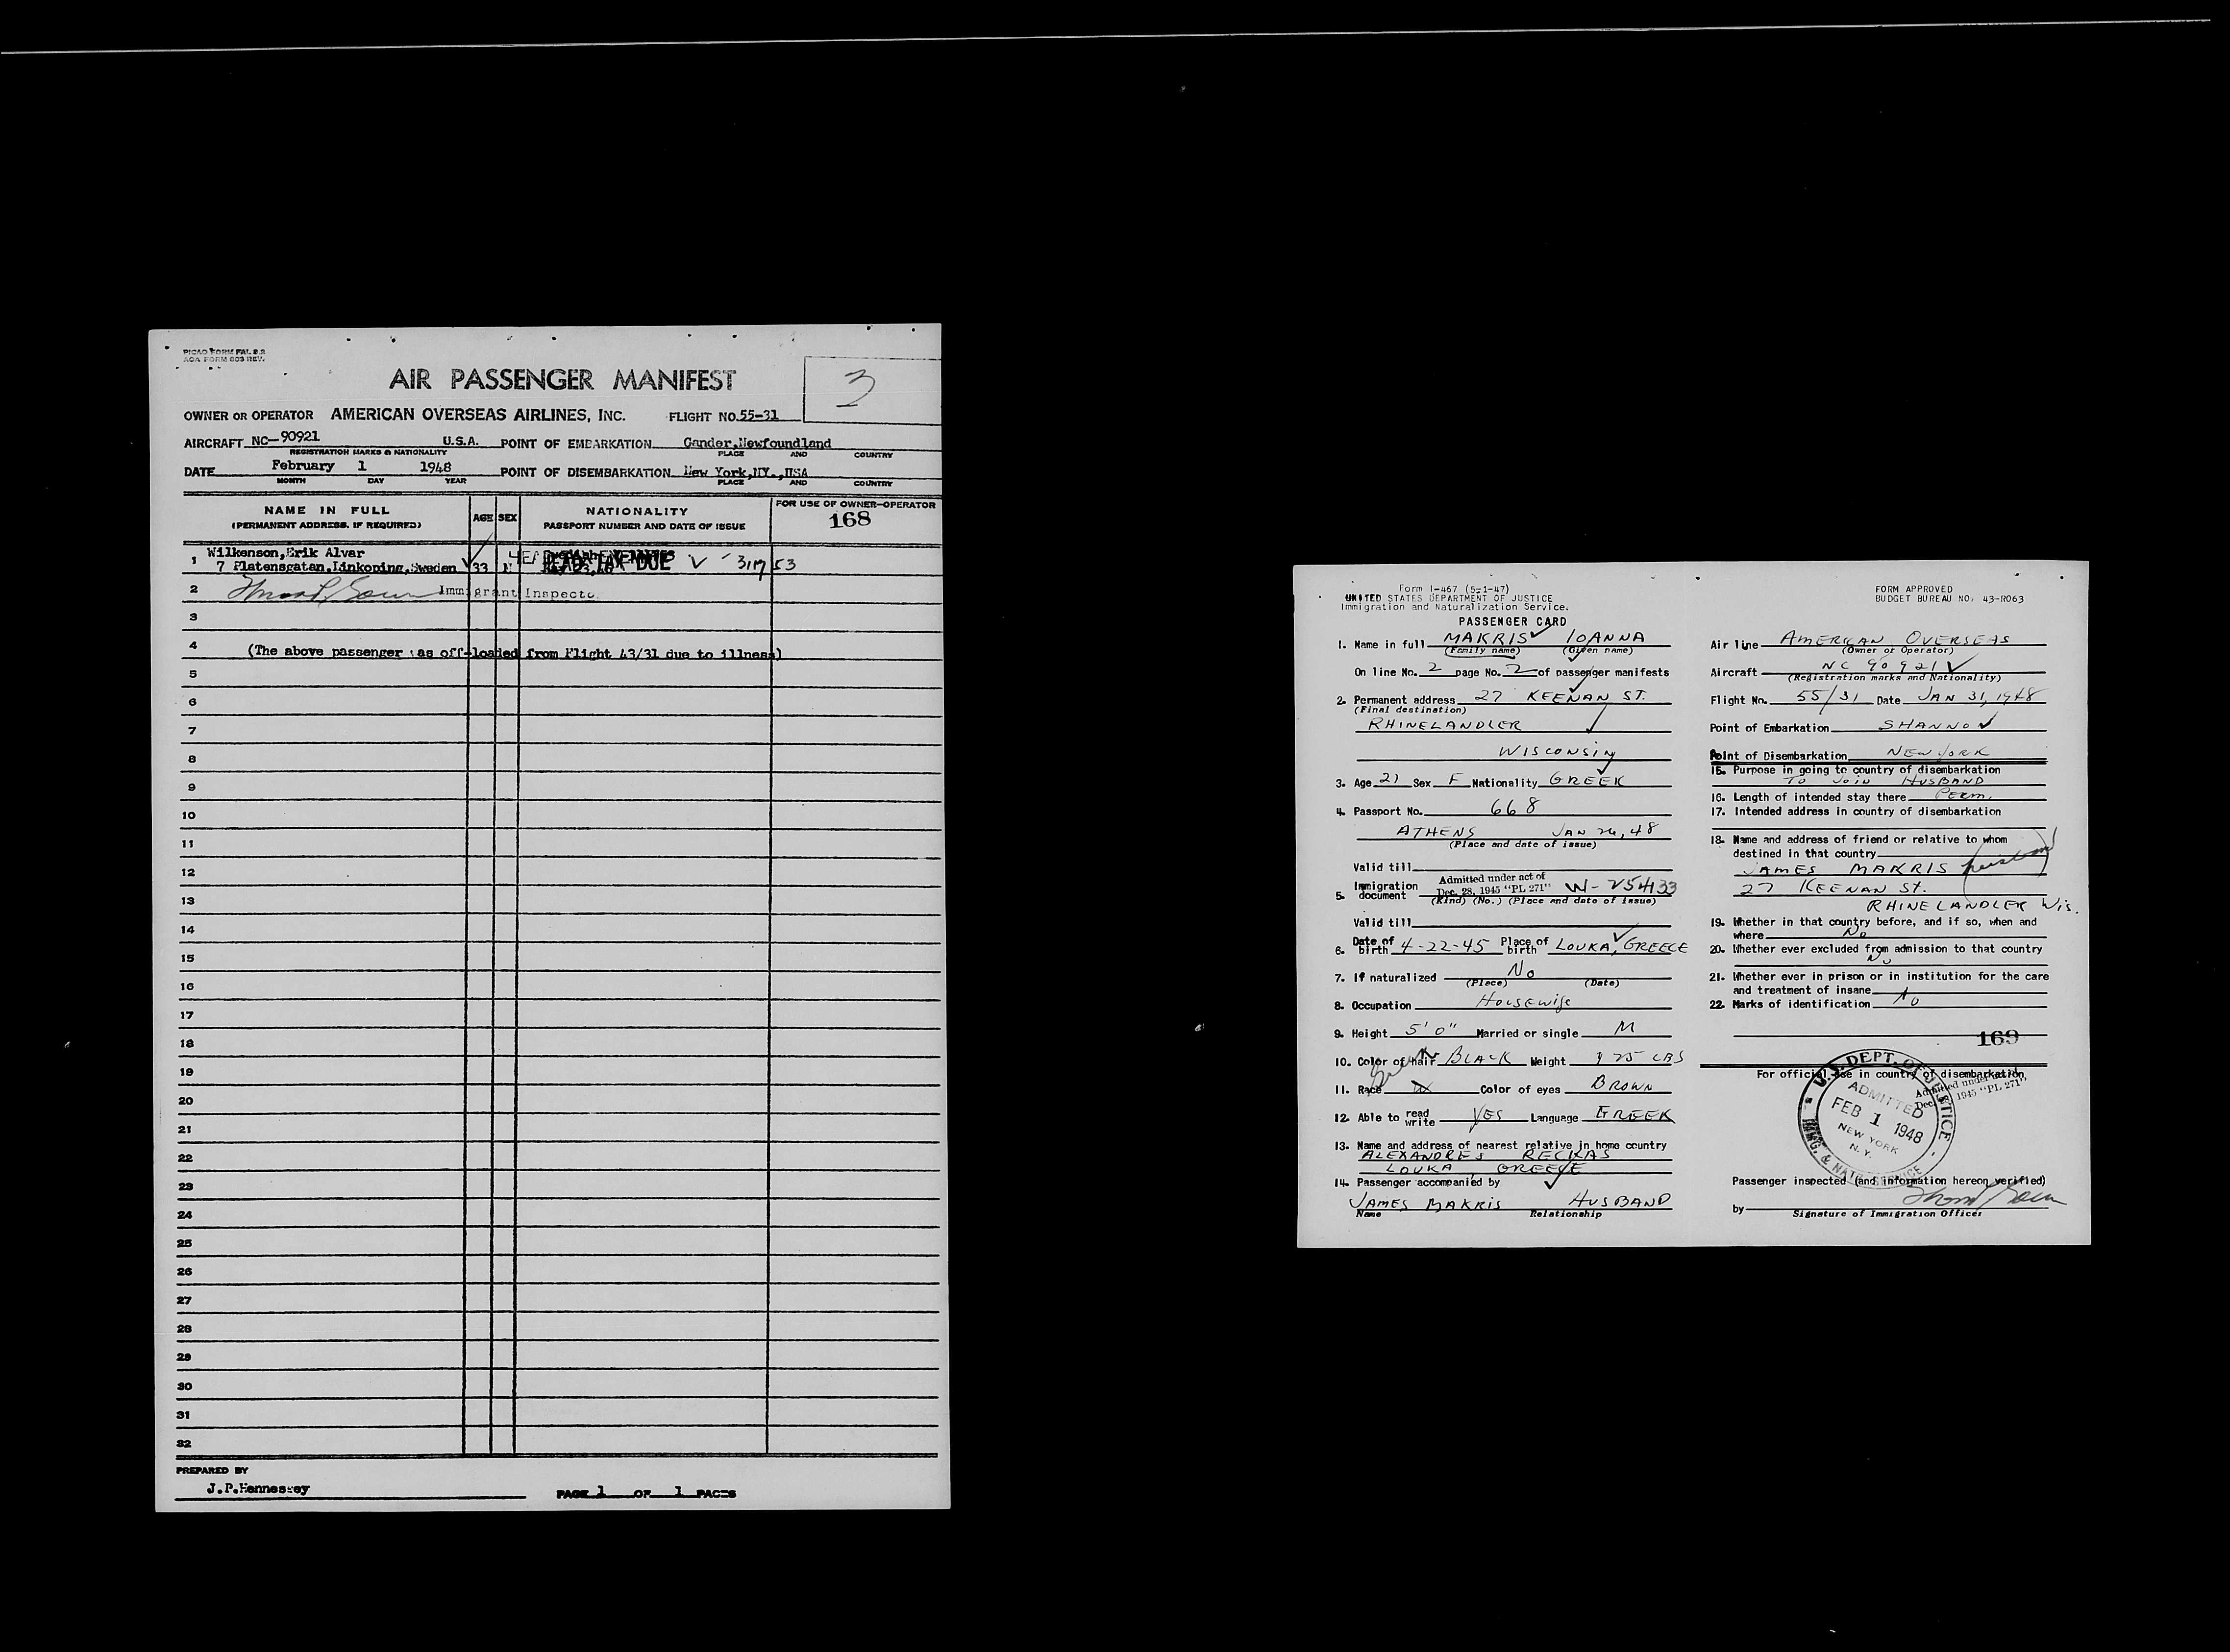 PICAO FORM FAL 2.2
AOA FORM 603 REV.
AIR PASSENGER MANIFEST
3
OWNER OR OPERATOR AMERICAN OVERSEAS AIRLINES, INC. FLIGHT NO. 55-31
AIRCRAFT NC-90921 U.S.A. POINT OF EMBARKATION Gander, Newfoundland
REGISTRATION MARKS & NATIONALITY PLACE AND COUNTRY
DATE February 1 1948 POINT OF DISEMBARKATION New York, NY., USA
MONTH DAY YEAR PLACE AND COUNTRY
NAME IN FULL AGE SEX NATIONALITY FOR USE OF OWNER-OPERATOR
(PERMANENT ADDRESS. IF REQUIRED) PASSPORT NUMBER AND DATE OF ISSUE 168
1 Wilkenson, Erik Alvar
7 Platensgatan, Linkoping, Sweden 33 M HEAD TAX DUE
2 Immigrant Inspector
3
4 (The above passenger was off-loaded from Flight 43/31 due to illness)
5
6
7
8
9
10
11
12
13
14
15
16
17
18
19
20
21
22
23
24
25
26
27
28
29
30
31
32
PREPARED BY
J.P.Hennessey PAGE 1 OF 1 PAGES
Form I-467 (5-1-47)
UNITED STATES DEPARTMENT OF JUSTICE
Immigration and Naturalization Service.
PASSENGER CARD
1. Name in full MAKRIS IOANNA
(Family name) (Given name)
On line No. 2 page No. 2 of passenger manifests
2. Permanent address 27 KEENAN ST.
(Final destination)
RHINELANDLER
WISCONSIN
3. Age 21 Sex F Nationality GREEK
4. Passport No. 668
ATHENS JAN 26, 48
(Place and date of issue)
Valid till
5. Immigration document Admitted under act of Dec. 28, 1945 "PL 271" W-25433
(Kind) (No.) (Place and date of issue)
Valid till
6. Date of birth 4-22-45 Place of birth LOUKA, GREECE
7. If naturalized No
(Place) (Date)
8. Occupation Housewife
9. Height 5' 0" Married or single M
10. Color of hair BLACK Weight 125 LBS
11. Race Color of eyes BROWN
12. Able to read write YES Language GREEK
13. Name and address of nearest relative in home country
ALEXANDRES RECKAS
LOUKA, GREECE
14. Passenger accompanied by
JAMES MAKRIS HUSBAND
Name Relationship
FORM APPROVED
BUDGET BUREAU NO. 43-R063
Air line AMERICAN OVERSEAS
(Owner or Operator)
Aircraft NC 90921
(Registration marks and Nationality)
Flight No. 55/31 Date JAN 31, 1948
Point of Embarkation SHANNON
Point of Disembarkation NEW YORK
15. Purpose in going to country of disembarkation
TO JOIN HUSBAND
16. Length of intended stay there Perm.
17. Intended address in country of disembarkation
18. Name and address of friend or relative to whom
destined in that country
JAMES MAKRIS husband
27 KEENAN ST.
RHINELANDLER Wis.
19. Whether in that country before, and if so, when and
where No
20. Whether ever excluded from admission to that country
No
21. Whether ever in prison or in institution for the care
and treatment of insane No
22. Marks of identification
169
For official use in country of disembarkation
Admitted under act of
Dec. 28, 1945 "PL 271"
U.S. DEPT. OF JUSTICE
ADMITTED
FEB 1 1948
NEW YORK
N.Y.
IMMG. & NATZ. SERVICE
Passenger inspected (and information hereon verified)
by
Signature of Immigration Officer